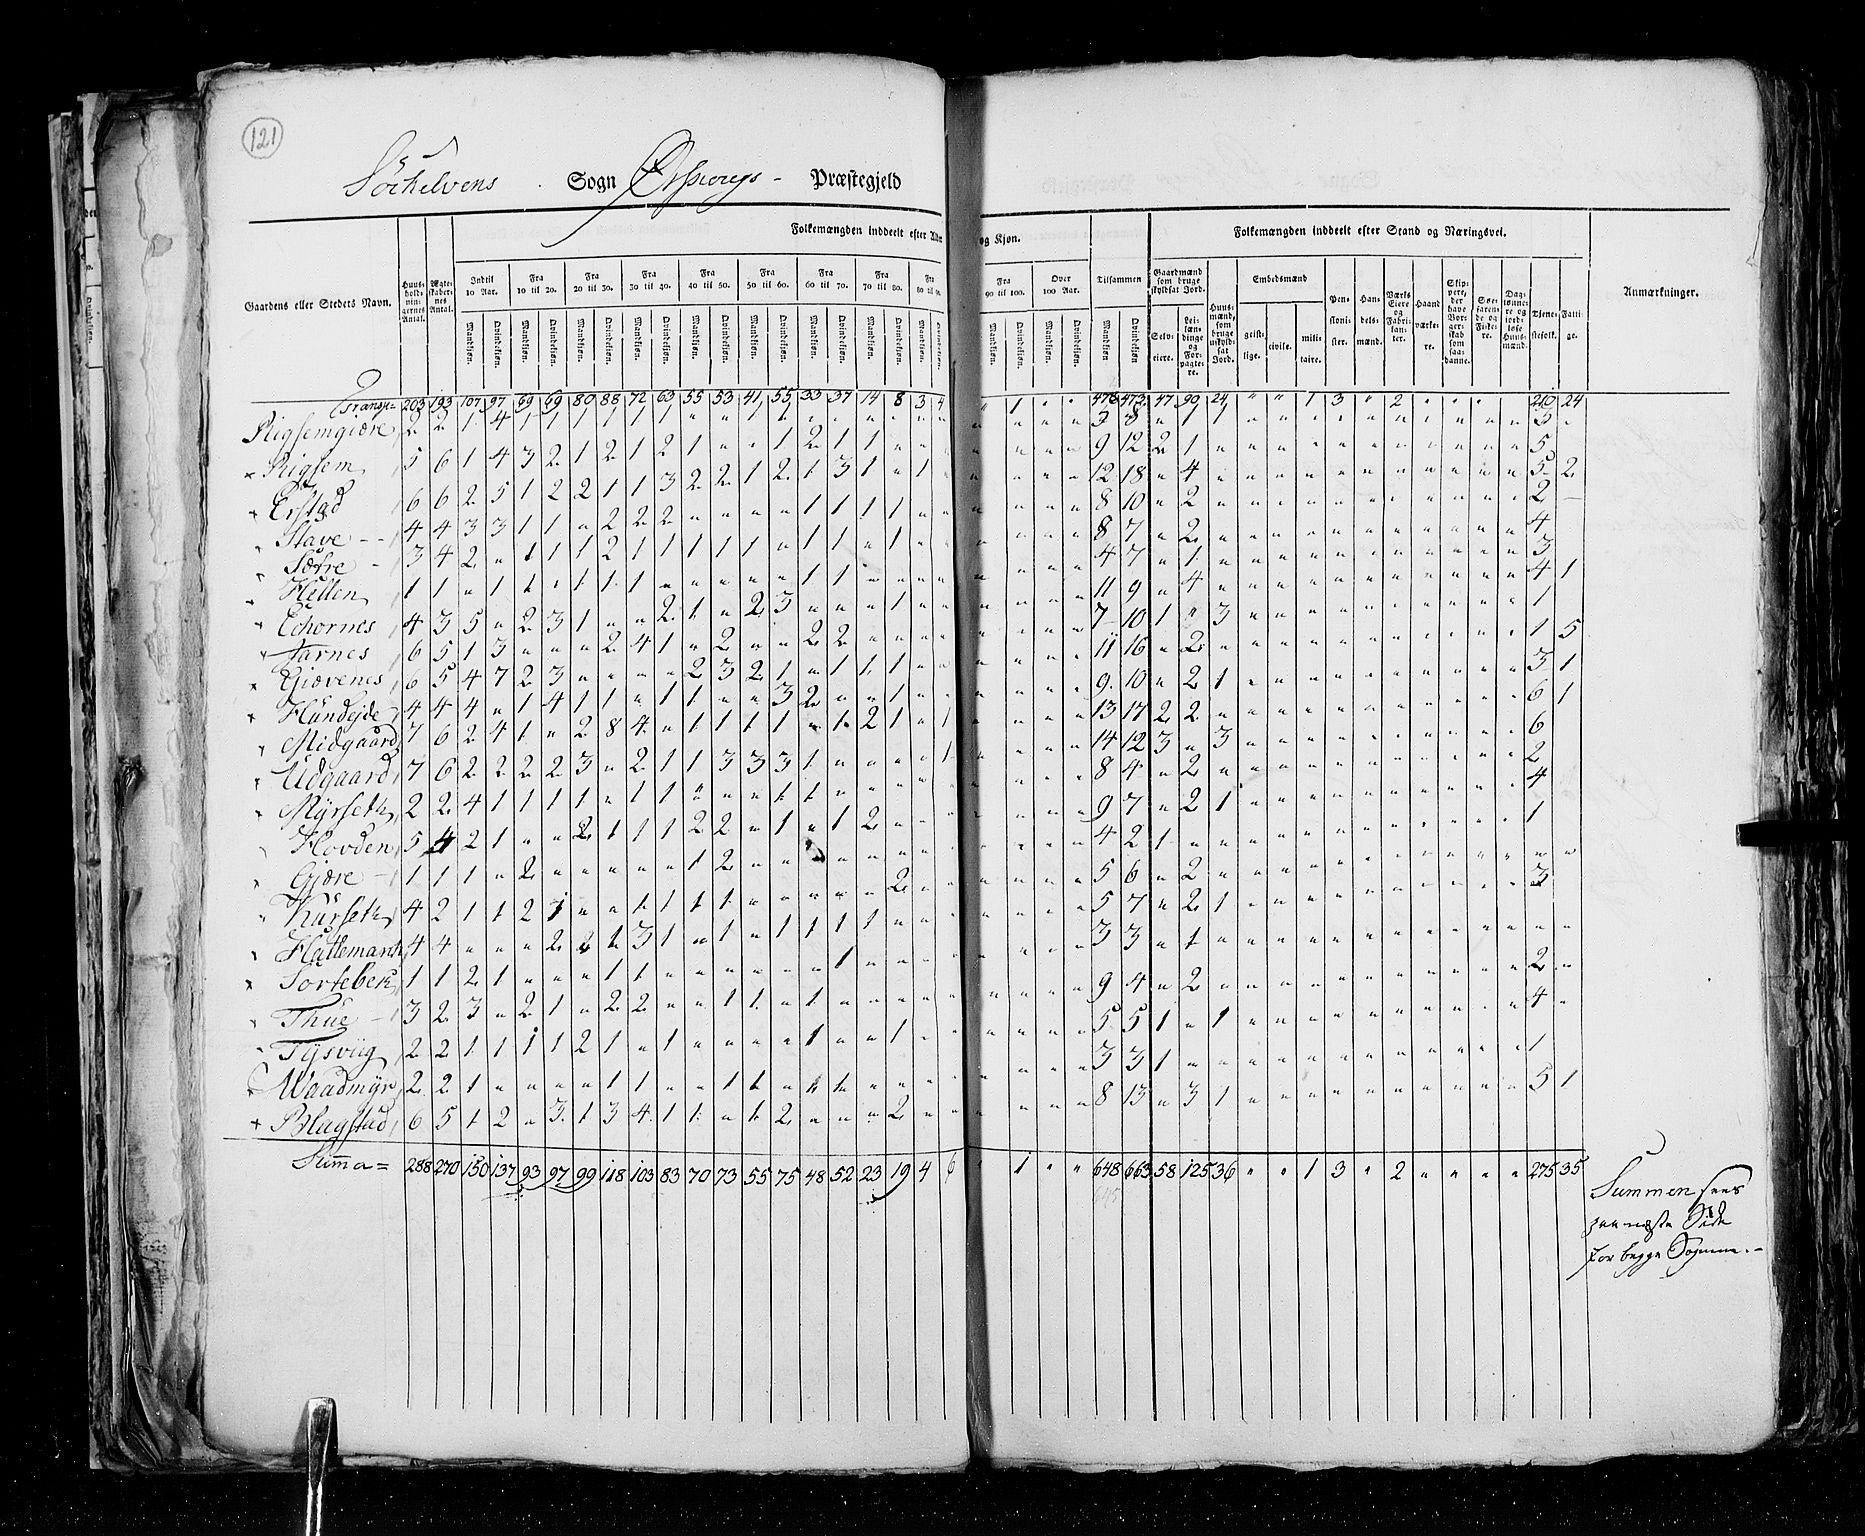 121
Sörkelvens Sogn Ørskougs Præstegjeld
Folkemængden inddeelt efter Alder og Kjøn.
Folkemængden inddeelt efter Stand og Næringsvei.
Gaardens eller Steders Navn.
Huusholdningernes Antal.
Ægteskabernes Antal.
Indtil 10 Aar.
Fra 10 til 20.
Fra 20 til 30.
Fra 30 til 40.
Fra 40 til 50.
Fra 50 til 60.
Fra 60 til 70.
Fra 70 til 80.
Fra 80 til 90.
Fra 90 til 100.
Over 100 Aar.
Tilsammen
Gaardmænd som bruge skyldsat Jord.
Huusmænd, som bruge uskyldsat Jord.
Embedsmænd
Pensionister.
Handelsmænd.
Værks Eiere og Fabrikanter.
Haandværkere.
Skippere, der have Borgerskab som saadanne.
Søefarende og Fiskere.
Daglønnere og jordløse Huusmænd.
Tjenestefolk.
Fattige.
Anmærkninger.
Mandkjøn. Qvindekjøn.
Selveiere.
Leilændinge og Forpagtere.
geistlige. civile. militaire.
Transp. 203 193 107 97 69 69 80 88 72 63 55 53 41 55 33 37 14 8 3 4 " 1 " " 476 473 47 90 24 " " 1 3 " 2 " " " 210 24
Rigsemgiære 2 2 1 4 1 1 1 1 1 1 3 8 " 1 1 3
Rigsem 5 6 1 4 3 2 1 2 1 2 1 " " 1 2 1 1 9 12 2 1 5
Erstad 6 6 2 5 1 2 2 1 1 3 2 2 1 2 1 3 1 " 1 12 18 " 4 5 2
Stave 4 4 3 3 1 1 " 2 2 2 " " " " 1 1 1 1 8 10 " 2 2
Sætre 3 4 2 " 1 1 1 2 1 1 1 1 1 " 1 1 " 1 8 7 " 2 4
Hellen 1 1 " 1 1 " 1 1 1 " " " " " 1 1 4 7 " 1 3
Echornes 4 3 5 " 2 3 1 " " 2 1 " 2 3 " " " 1 11 9 " 4 4 1
Tarnes 6 5 1 3 " " " 2 4 1 " 2 " " 2 2 7 10 1 " 3 1
Giævenes 6 5 4 7 2 3 " " " " 2 3 2 1 " 1 1 1 11 16 " 2 1 5
Hundejde 4 4 4 " 1 4 1 1 " 1 1 " " 3 2 " " 1 9 10 " 2 1 3 1
Midgaard 7 6 2 4 1 " 2 8 4 " 1 1 1 1 " 1 2 1 " 1 13 17 2 2 6 1
Udgaard 7 6 2 2 2 2 3 " 2 1 1 3 3 3 1 " " " " 1 14 12 3 " 3 6
Myrseth 2 2 4 1 1 1 1 " 1 1 " " 1 1 8 4 " 2 2
Hovden 5 4 2 1 " " 2 1 1 1 2 2 " 1 " 1 2 9 7 " 2 1 4
Giære 1 1 1 " 2 " " " " " 1 2 4 2 1 1
Kurseth 4 2 1 1 2 1 " " 1 1 1 1 " " " " " 2 5 6 " 2 3
Hattemark 4 4 " " " 2 2 1 3 1 " 1 " 1 1 1 1 5 7 " 2 1
Sortebek 1 1 2 1 " " " 1 1 " " " " " " 1 3 3 " 1
Thue 3 2 3 " 2 1 " 2 2 " " 1 1 " 1 9 4 " 2 2
Tysviig 2 2 1 1 1 1 2 1 " 1 " " " " 1 " " 1 5 5 1 " 1 4
Waadmyr 2 2 1 " " " " 1 1 " " 1 1 " " 1 3 3 1 1
Blagstad 6 5 1 2 " 3 1 3 4 1 1 " 1 2 " " " 2 8 13 " 3 1 5 1
Summa= 288 270 150 137 93 97 99 118 103 83 70 73 55 75 48 52 23 19 4 6 " 1 " " 648 663 58 125 36 " " 1 3 " 2 " " " " 275 35
Summen sees
paa næste Side
for begge Sognene.